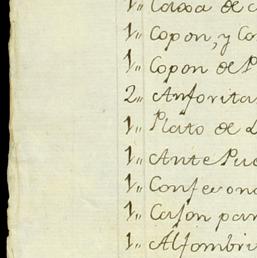 1,, Caxa de c
1,, Copon, y Co
1,, Copon de P
2,, Anforita
1,, Plato de L
1,, Ante Pue
1,, Confeciona
1,, Cason par
1,, Alfombri